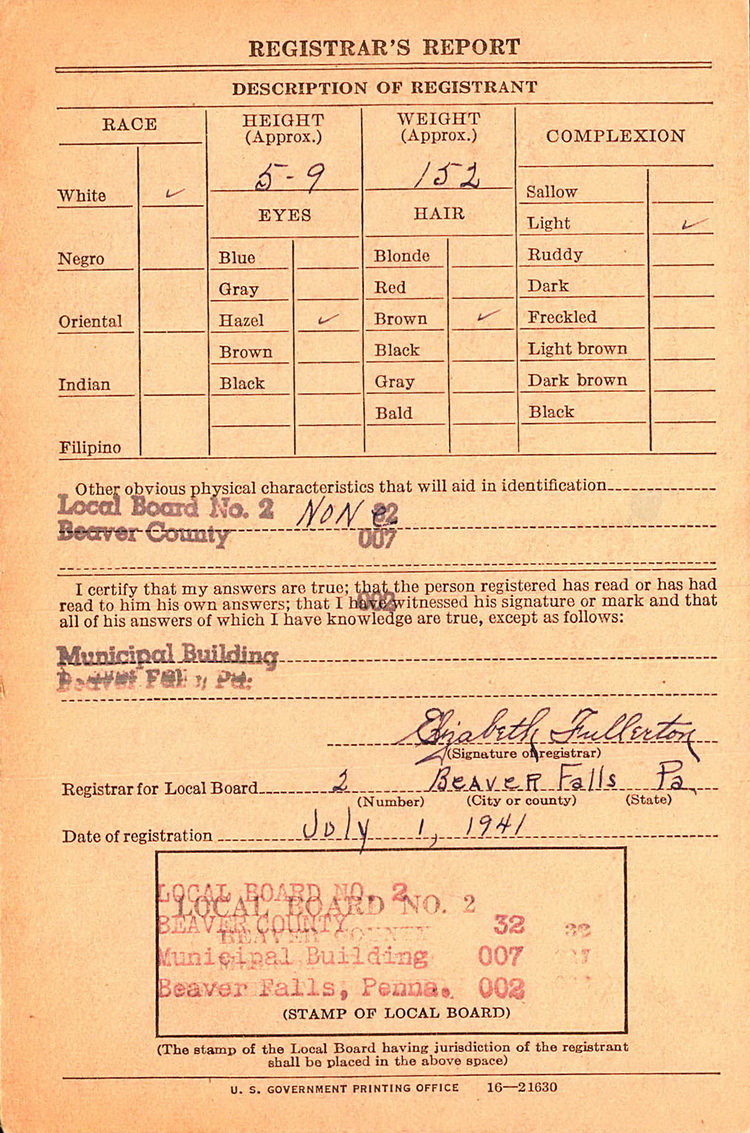 REGISTRAR'S REPORT
DESCRIPTION OF REGISTRANT
RACE
HEIGHT
(Approx.)
WEIGHT
(Approx.)
COMPLEXION
5-9
152
White ✓
Negro
Oriental
Indian
Filipino
EYES
Blue
Gray
Hazel ✓
Brown
Black
HAIR
Blonde
Red
Brown ✓
Black
Gray
Bald
Sallow
Light ✓
Ruddy
Dark
Freckled
Light brown
Dark brown
Black
Other obvious physical characteristics that will aid in identification
Local Board No. 2 NONe 32
Beaver County 007
I certify that my answers are true; that the person registered has read or has had
002
read to him his own answers; that I have witnessed his signature or mark and that
all of his answers of which I have knowledge are true, except as follows:
Municipal Building
Beaver Falls, Pa.
Elizabeth Fullerton
(Signature of registrar)
Registrar for Local Board 2 Beaver Falls Pa
(Number) (City or county) (State)
Date of registration July 1, 1941
LOCAL BOARD NO. 2
LOCAL BOARD NO. 2
BEAVER COUNTY 32 32
BEAVER COUNTY
Municipal Building 007
Beaver Falls, Penna. 002
(STAMP OF LOCAL BOARD)
(The stamp of the Local Board having jurisdiction of the registrant
shall be placed in the above space)
U. S. GOVERNMENT PRINTING OFFICE 16—21630